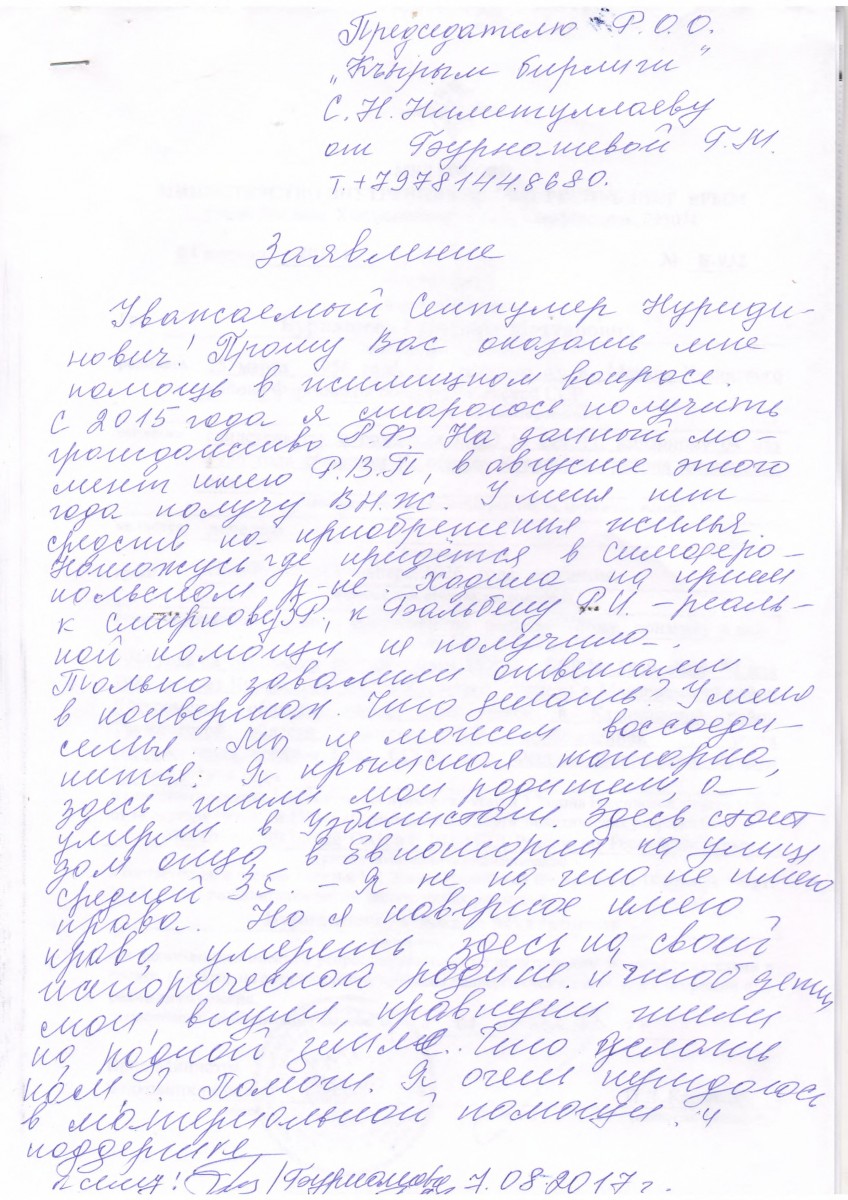 Председателю Р.О.О.
„Кърым бирлиги"
С.Н. Ниметуллаеву
от Бурнашевой Г.М.
т. +7978144.8680.
Заявление
Уважаемый Сейтумер Нуриди-
нович! Прошу Вас оказать мне
помощь в жилищном вопросе.
С 2015 года я стараюсь получить
гражданство Р.Ф. На данный мо-
мент имею Р.В.П, в августе этого
года получу ВН.Ж. У меня нет
средств на приобретения жилья.
Нахожусь где придётся в симферо-
польском р-не. Ходила на прием
к Смирнову ЗР, к Бальбеку Р.И. – реаль-
ной помощи не получила.
Только завалили ответами
в конвертах. Что делать? У меня
семья. Мы не можем воссоеди-
нится. Я крымская татарка,
здесь жили мои родители, а
умерли в Узбекистан. Здесь стоит
дом отца в Евпатории на улици
средней 35. – Я не на что не имею
права. Но я наверное имею
право умереть здесь на своей
исторической родине. и чтоб дети
мои, внуки, правнуки жили
на родной земле. Что делать
нам,? Помоги. Я очень нуждаюсь
в материальной помощи. и
поддержке
/Бурнашева 7.08-2017 г.